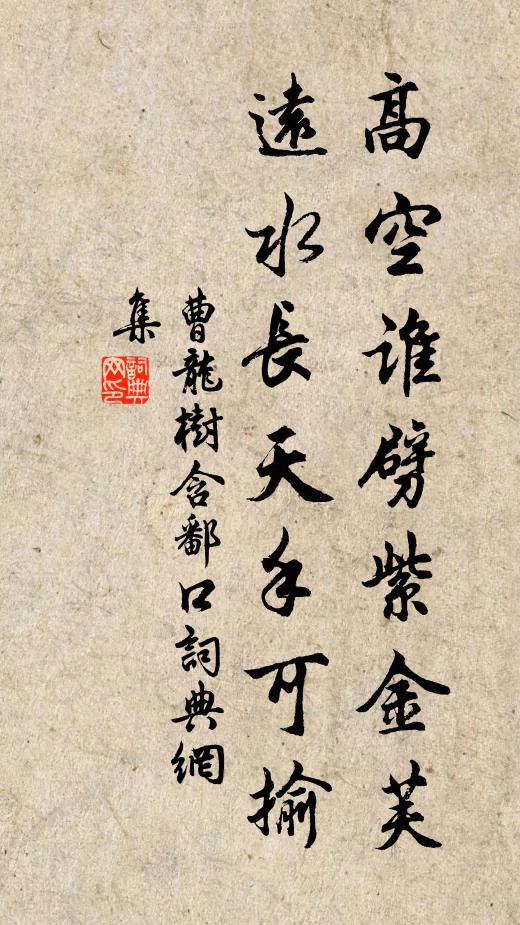 高空谁劈紫金芙
遠水長天手可揄
曹龍樹含鄱口詞典網
集
詞典
网印